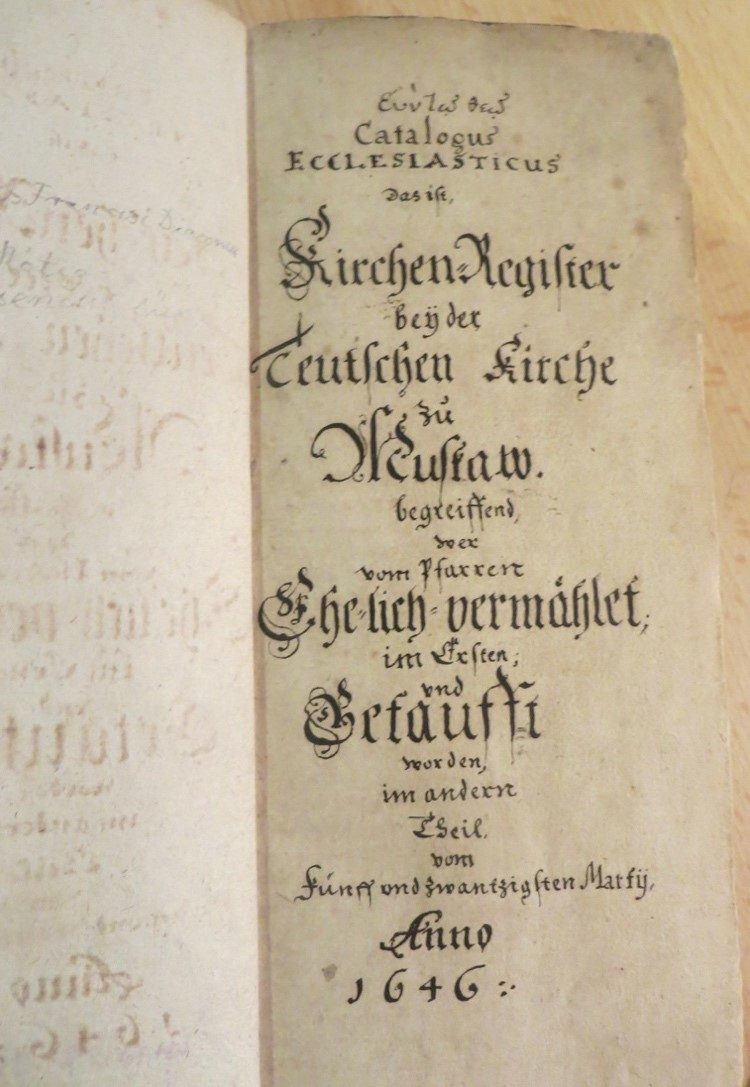 Σὺν τῷ θεῷ
Catalogus
ECCLESIASTICUS
Das ist,
Kirchen-Register
beÿ der
Teutschen Kirche
zu
Muskaw.
begreiffend,
wer
vom Pfarren
Ehe-lich-vermählet;
im Ersten;
vnd
Getaufft
worden,
im andern
Theil,
vom
Fünff vnd zwantzigsten Martij,
Anno
1646